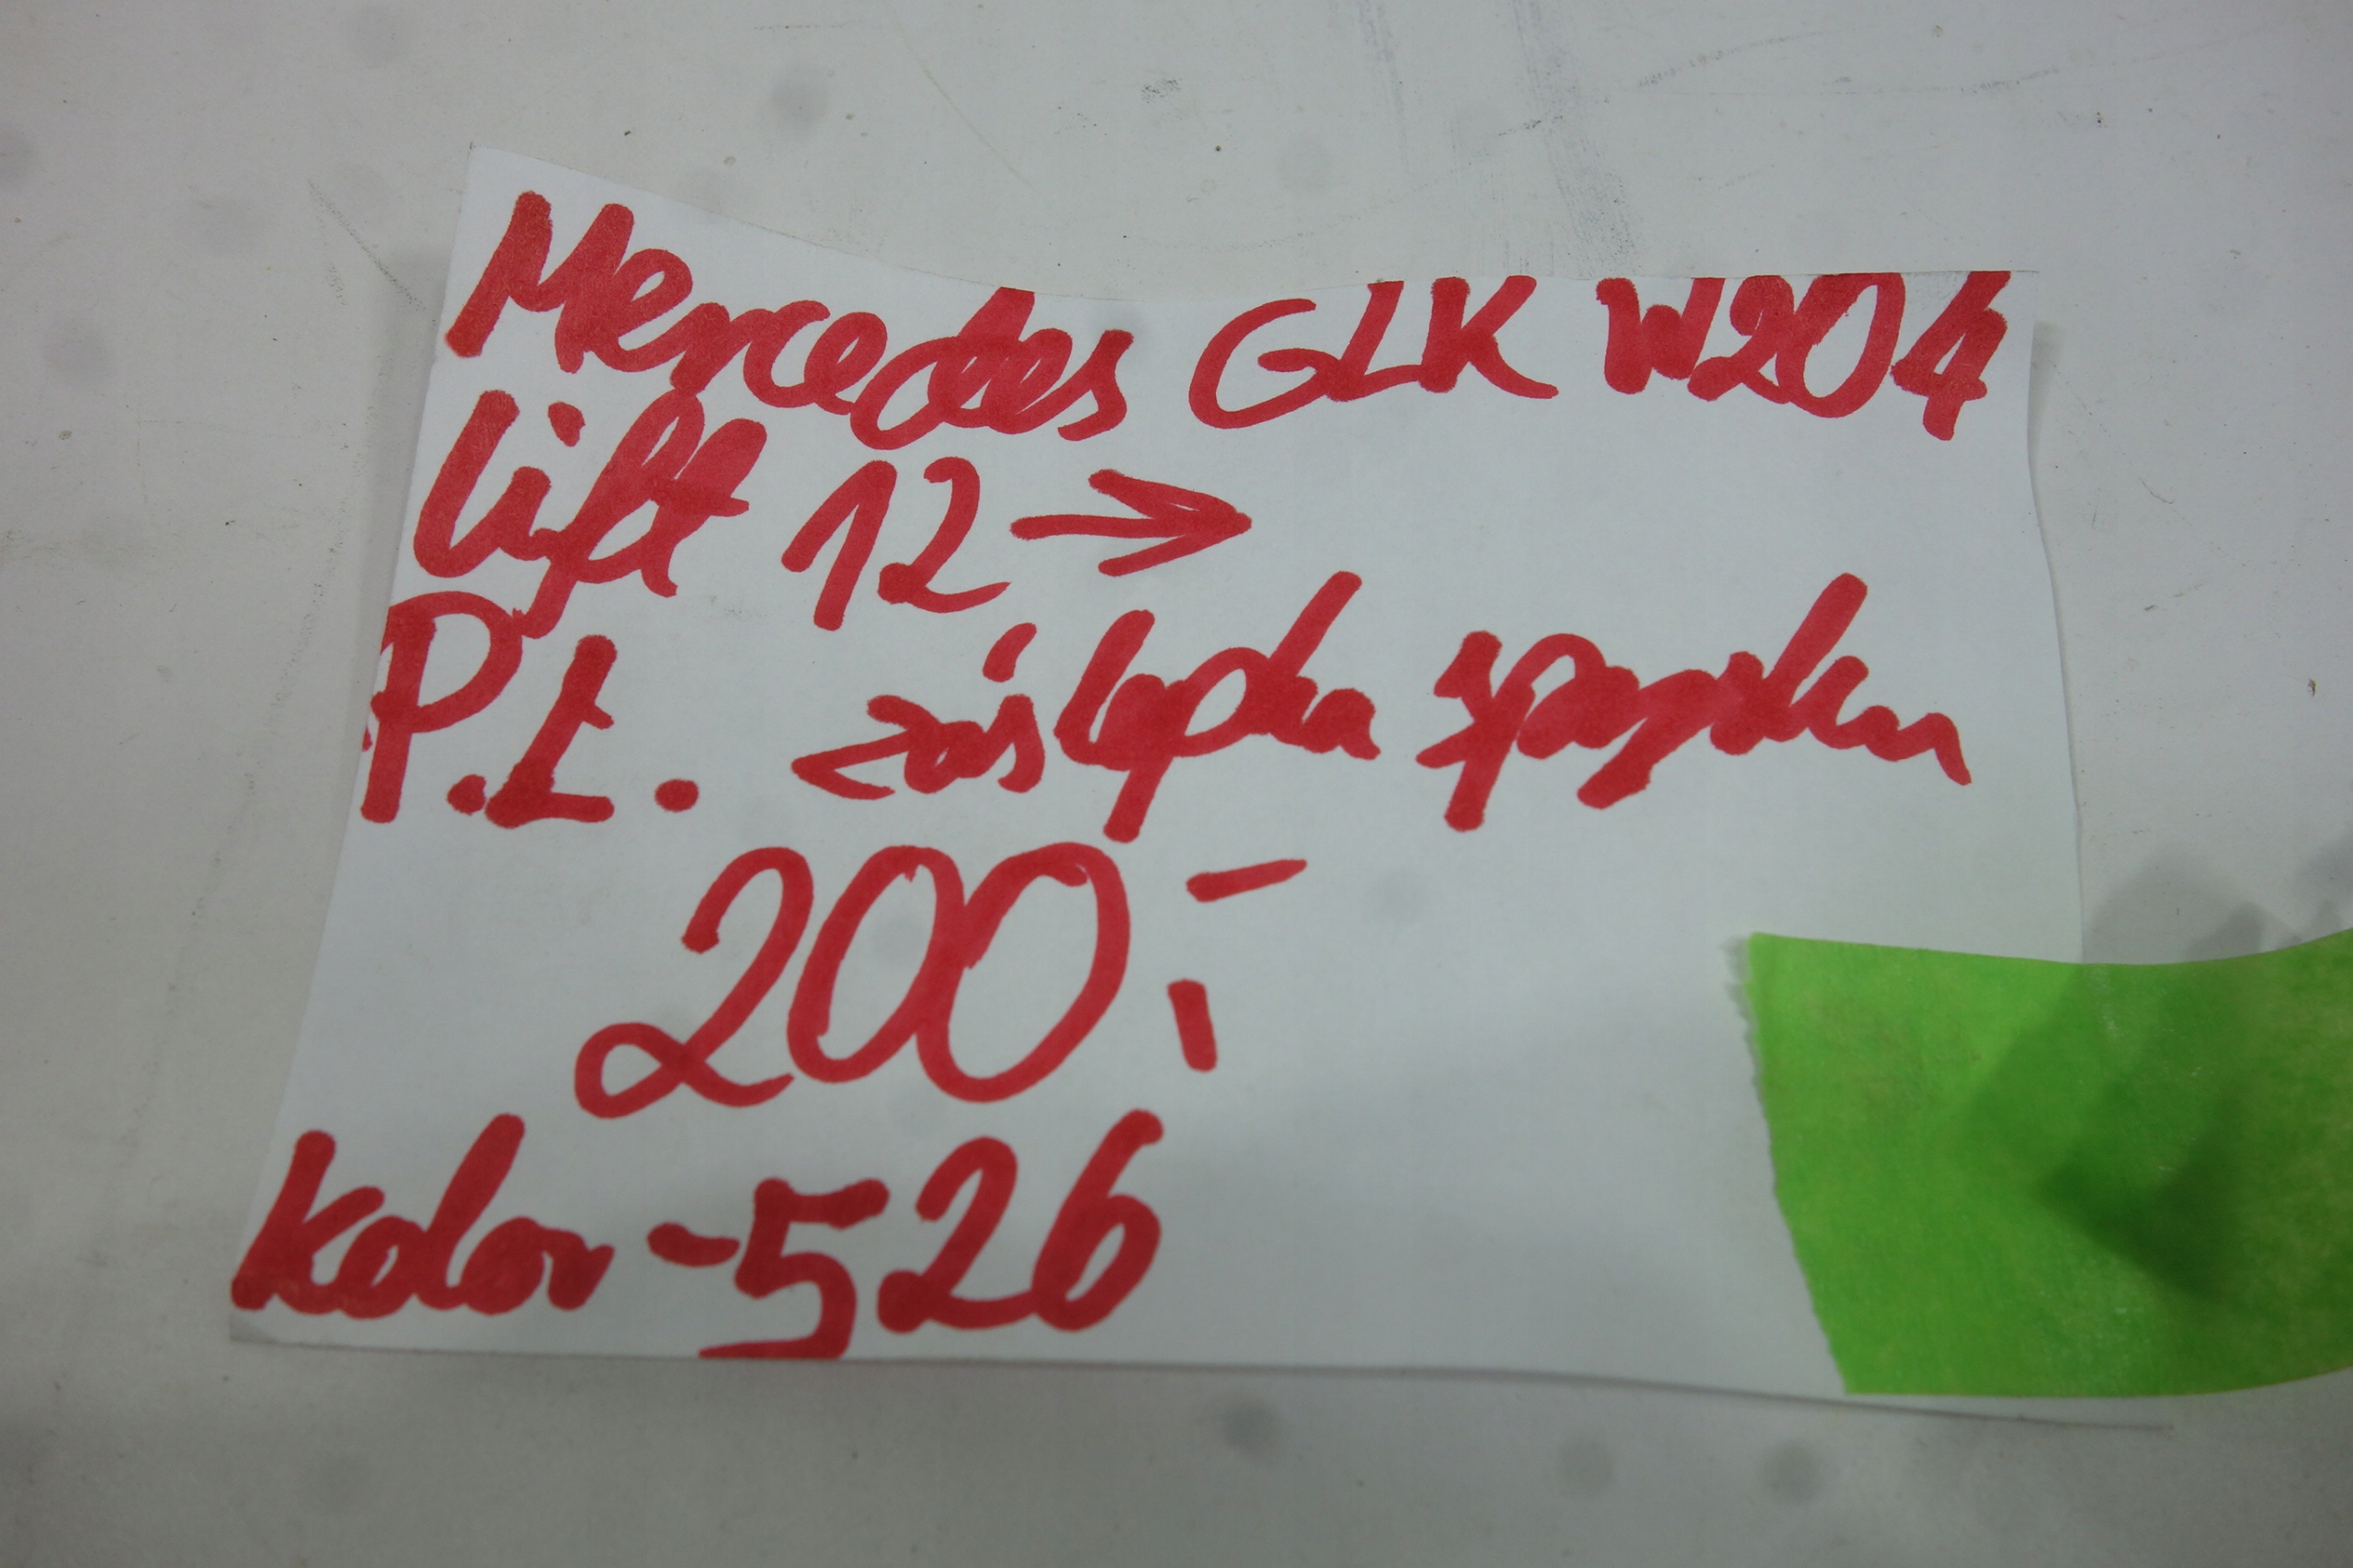 Mercedes GLK W204
lift 12 →
P.Ł. zaślepka
200,-
kolor - 526